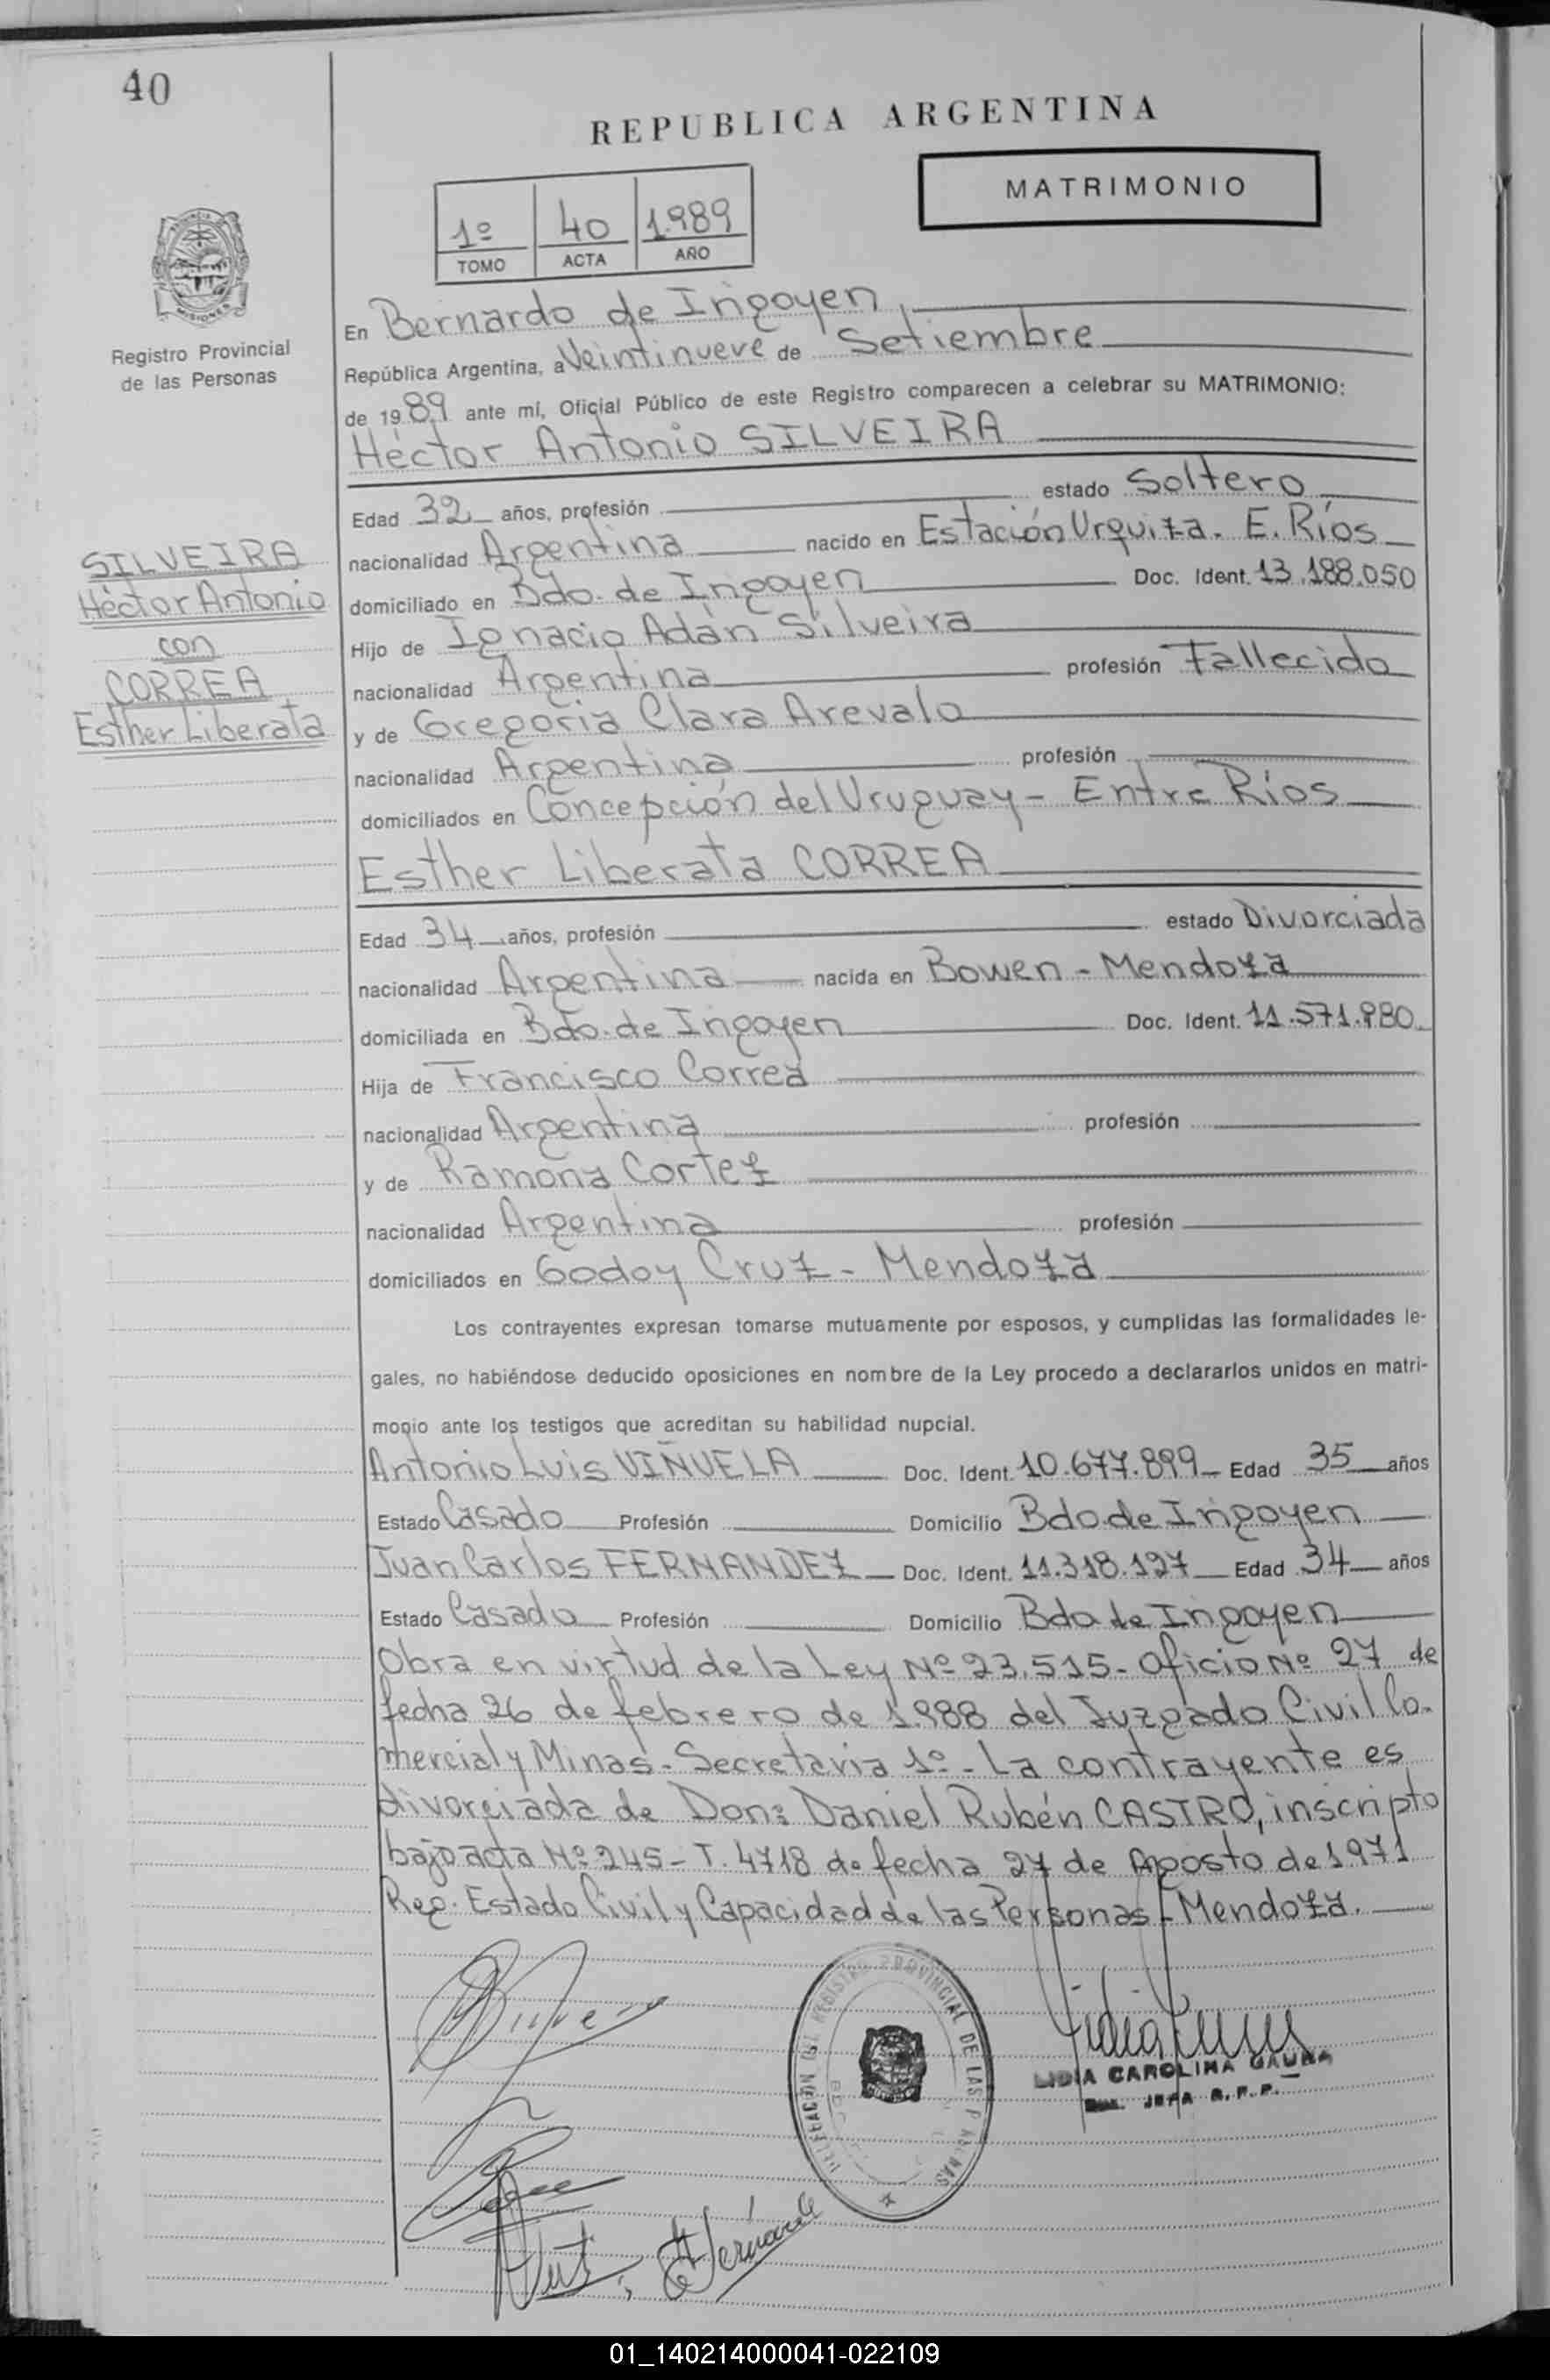 40
REPUBLICA ARGENTINA
MATRIMONIO
1º 40 1.989
TOMO ACTA AÑO
MISIONES
Registro Provincial
de las Personas
En Bernardo de Irigoyen,
República Argentina, a Veintinueve de Setiembre
de 1989 ante mí, Oficial Público de este Registro comparecen a celebrar su MATRIMONIO:
Héctor Antonio SILVEIRA
Edad 32 años, profesión estado Soltero
nacionalidad Argentina nacido en Estación Urquiza. E. Ríos
domiciliado en Bdo. de Irigoyen Doc. Ident. 13.188.050
Hijo de Ignacio Adán Silveira
nacionalidad Argentina profesión Fallecido
y de Gregoria Clara Arevalo
nacionalidad Argentina profesión
domiciliados en Concepción del Uruguay - Entre Ríos
SILVEIRA
Héctor Antonio
con
CORREA
Esther Liberata
Esther Liberata CORREA
Edad 34 años, profesión estado Divorciada
nacionalidad Argentina nacida en Bowen - Mendoza
domiciliada en Bdo. de Irigoyen Doc. Ident. 11.571.980
Hija de Francisco Correa
nacionalidad Argentina profesión
y de Ramona Cortez
nacionalidad Argentina profesión
domiciliados en Godoy Cruz - Mendoza
Los contrayentes expresan tomarse mutuamente por esposos, y cumplidas las formalidades le-
gales, no habiéndose deducido oposiciones en nombre de la Ley procedo a declararlos unidos en matri-
monio ante los testigos que acreditan su habilidad nupcial.
Antonio Luis VIÑUELA Doc. Ident. 10.677.899 Edad 35 años
Estado Casado Profesión Domicilio Bdo de Irigoyen
Juan Carlos FERNANDEZ Doc. Ident. 11.318.197 Edad 34 años
Estado Casado Profesión Domicilio Bdo de Irigoyen
Obra en virtud de la Ley Nº 23.515 - Oficio Nº 27 de
fecha 26 de febrero de 1.988 del Juzgado Civil Co-
mercial y Minas - Secretaria 1º - La contrayente es
divorciada de Don: Daniel Rubén CASTRO, inscripto
bajo acta Nº 245 - T. 4718 de fecha 27 de Agosto de 1.971
Reg. Estado Civil y Capacidad de las Personas - Mendoza.
DELEGACION DEL REGISTRO PROVINCIAL DE LAS PERSONAS
LIDIA CAROLINA GAUNA
JEFA R. P. P.
01_140214000041-022109